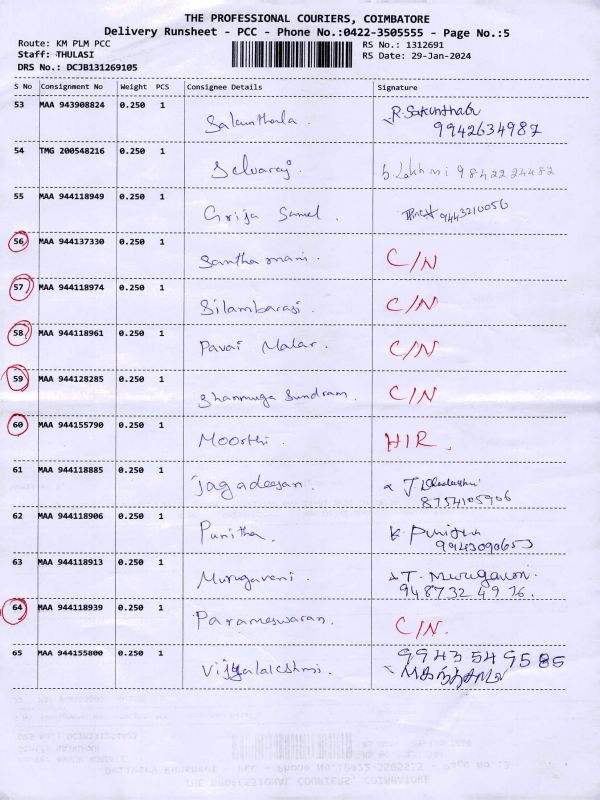 THE PROFESSIONAL COURIERS, COIMBATORE
Delivery Runsheet - PCC - Phone No.:0422-3505555 - Page No.:5
Route: KM PLM PCC RS No.: 1312691
Staff: THULASI RS Date: 29-Jan-2024
DRS No.: DCJB131269105
S No Consignment No Weight PCS Consignee Details Signature
53 MAA 943908824 0.250 1 Sakunthala R. Sakunthala
9942634987
54 TMG 200548216 0.250 1 Selvaraj b. Lakhmi 9842224482
55 MAA 944118949 0.250 1 Girija Samel. 9443210056
56 MAA 944137330 0.250 1 Santha mani. C/N
57 MAA 944118974 0.250 1 Silambarasi C/N
58 MAA 944118961 0.250 1 Pavai Malar. C/N
59 MAA 944128285 0.250 1 Shanmuga Sundram. C/N
60 MAA 944155790 0.250 1 Moorthi. HIR.
61 MAA 944118885 0.250 1 Jagadeesan. J
8754105906
62 MAA 944118906 0.250 1 Punitha. K. Punitha
63 MAA 944118913 0.250 1 Murugaveni. T. Murugaveni.
94873 24926.
64 MAA 944118939 0.250 1 Parameswaran. C/N.
65 MAA 944155800 0.250 1 Vijyalakshmi. 9943549585